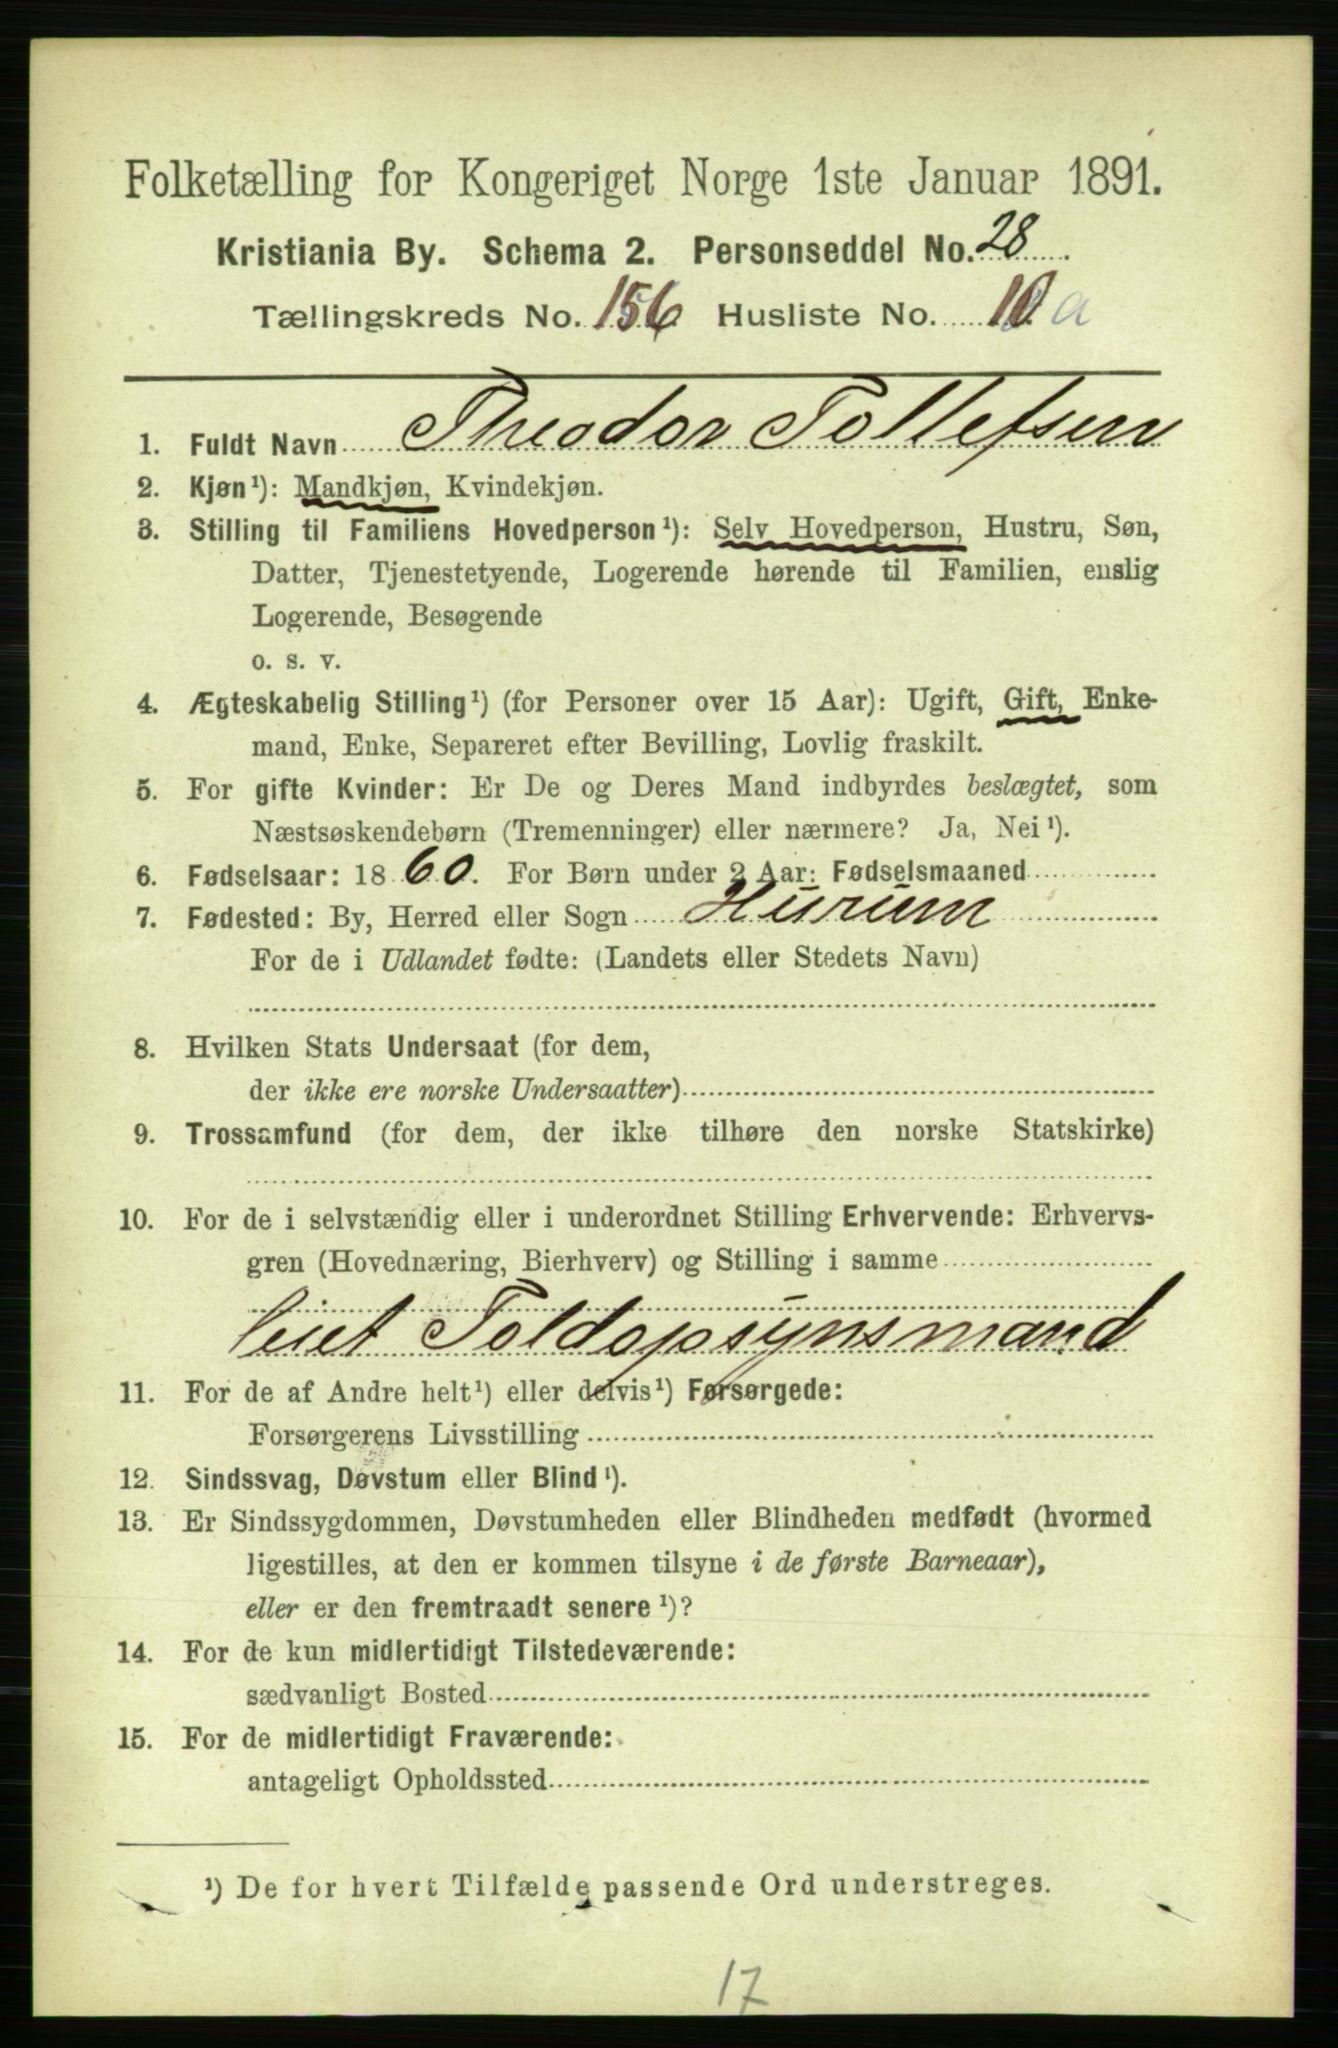 Folketælling for Kongeriget Norge 1ste Januar 1891.
Kristiania By. Schema 2. Personseddel No. 28.
Tællingskreds No. 156 Husliste No. 10 a
1. Fuldt Navn Theodor Tollefsen
2. Kjøn¹): Mandkjøn, Kvindekjøn.
3. Stilling til Familiens Hovedperson¹): Selv Hovedperson, Hustru, Søn,
Datter, Tjenestetyende, Logerende hørende til Familien, enslig
Logerende, Besøgende
o. s. v.
4. Ægteskabelig Stilling¹) (for Personer over 15 Aar): Ugift, Gift, Enke-
mand, Enke, Separeret efter Bevilling, Lovlig fraskilt.
5. For gifte Kvinder: Er De og Deres Mand indbyrdes beslægtet, som
Næstsøskendebørn (Tremenninger) eller nærmere? Ja, Nei¹).
6. Fødselsaar: 1860. For Børn under 2 Aar: Fødselsmaaned
7. Fødested: By, Herred eller Sogn Hurum
For de i Udlandet fødte: (Landets eller Stedets Navn)
8. Hvilken Stats Undersaat (for dem,
der ikke ere norske Undersaatter)
9. Trossamfund (for dem, der ikke tilhøre den norske Statskirke)
10. For de i selvstændig eller i underordnet Stilling Erhvervende: Erhvervs-
gren (Hovednæring, Bierhverv) og Stilling i samme
leiet Toldopsynsmand
11. For de af Andre helt¹) eller delvis¹) Forsørgede:
Forsørgerens Livsstilling
12. Sindssvag, Døvstum eller Blind¹).
13. Er Sindssygdommen, Døvstumheden eller Blindheden medfødt (hvormed
ligestilles, at den er kommen tilsyne i de første Barneaar),
eller er den fremtraadt senere¹)?
14. For de kun midlertidigt Tilstedeværende:
sædvanligt Bosted
15. For de midlertidigt Fraværende:
antageligt Opholdssted
¹) De for hvert Tilfælde passende Ord understreges.
17